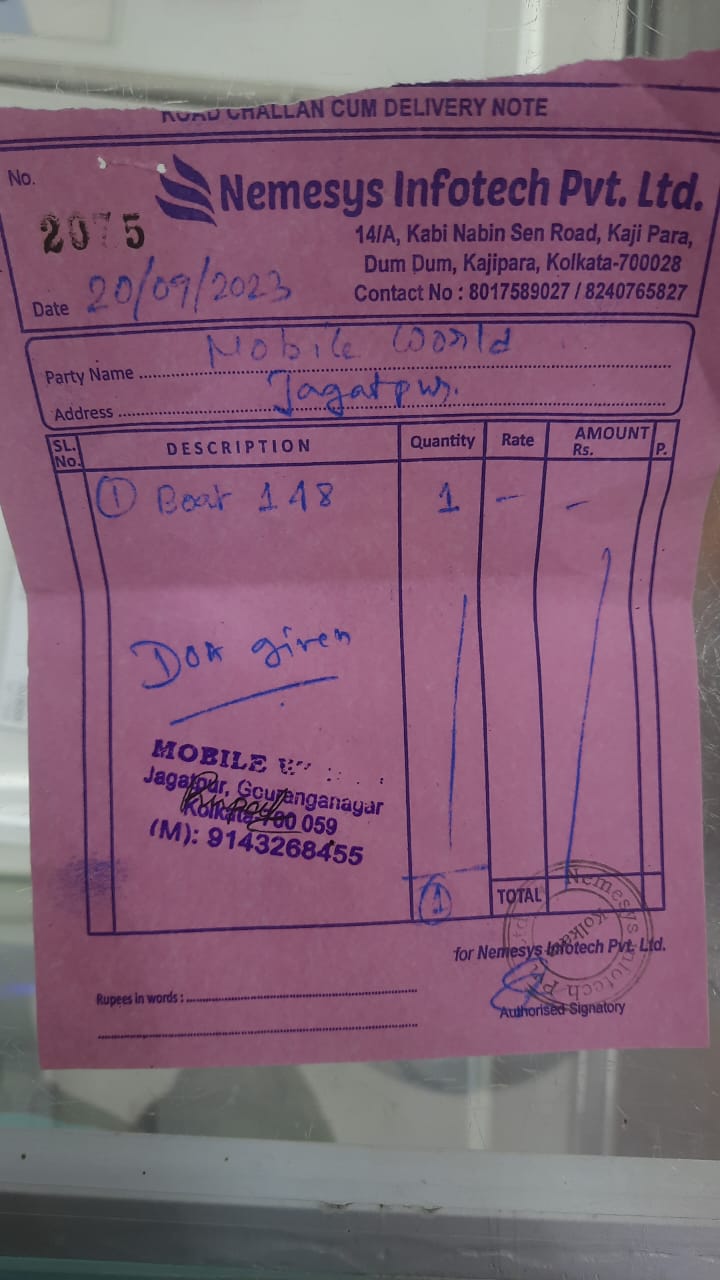 ROAD CHALLAN CUM DELIVERY NOTE
No.
2075
Nemesys Infotech Pvt. Ltd.
14/A, Kabi Nabin Sen Road, Kaji Para,
Dum Dum, Kajipara, Kolkata-700028
Contact No : 8017589027 / 8240765827
Date 20/09/2023
Party Name Mobile World
Address Jagatpur.
SL. No. DESCRIPTION Quantity Rate AMOUNT Rs. P.
① Boat 148 1 - -
DOA given
MOBILE
Jagatpur, Gouranganagar
Kolkata-700 059
(M): 9143268455
① TOTAL
Nemesys Infotech Pvt. Ltd.
Kolkata
for Nemesys Infotech Pvt. Ltd.
Rupees in words :
Authorised Signatory